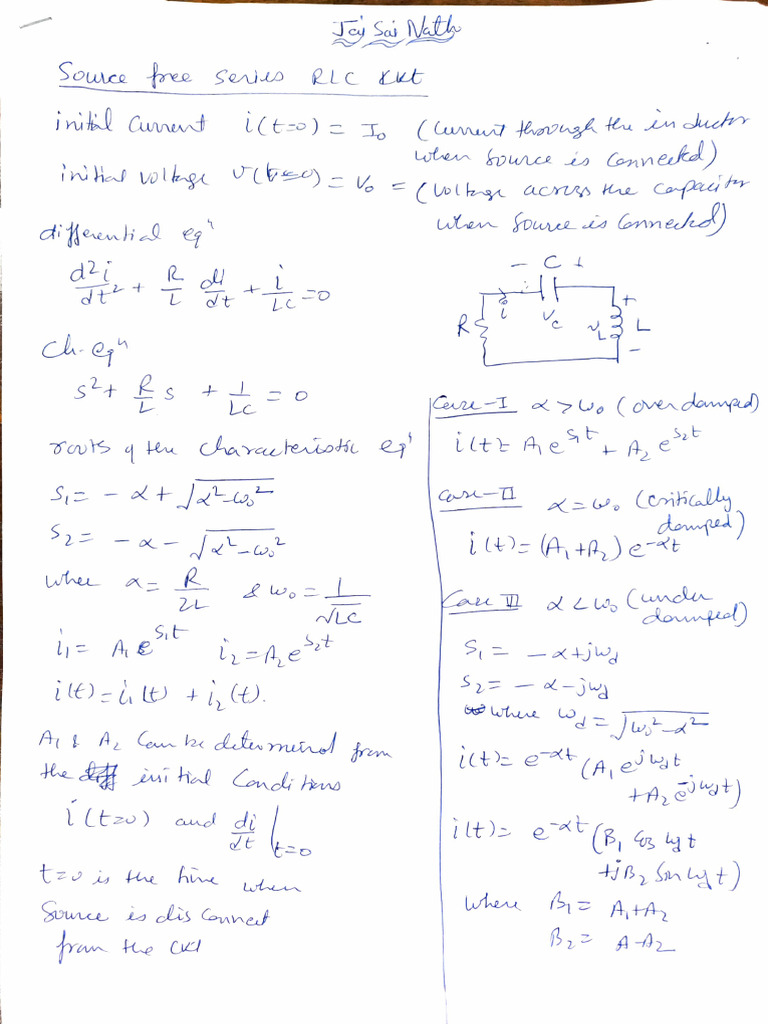 Jai Sai Nath
Source free series RLC CKt
initial current i(t=0) = I₀ (Current through the inductor
when source is connected)
initial voltage v(t=0) = V₀ = (voltage across the capacitor
when source is connected)
differential eqⁿ
d²i/dt² + R/L di/dt + i/LC = 0
Ch. eqⁿ
s² + R/L s + 1/LC = 0
roots of the characteristic eqⁿ
s₁ = -α + √(α²-ω₀²)
s₂ = -α - √(α²-ω₀²)
where α = R/2L & ω₀ = 1/√LC
i₁ = A₁e^s₁t i₂ = A₂e^s₂t
i(t) = i₁(t) + i₂(t).
A₁ & A₂ can be determined from
the initial conditions
i(t=0) and di/dt|t=0
t=0 is the time when
source is disconnect
from the CKt
- C +
R i Vc + vL L -
Case-I α > ω₀ (over damped)
i(t) = A₁e^s₁t + A₂e^s₂t
Case-II α = ω₀ (critically
damped)
i(t) = (A₁+A₂) e^-αt
Case III α < ω₀ (under
damped)
s₁ = -α + jωd
s₂ = -α - jωd
where ωd = √(ω₀²-α²)
i(t) = e^-αt (A₁e^jωdt
+A₂e^-jωdt)
i(t) = e^-αt (B₁ cos ωdt
+jB₂ Sin ωdt)
where B₁ = A₁+A₂
B₂ = A-A₂